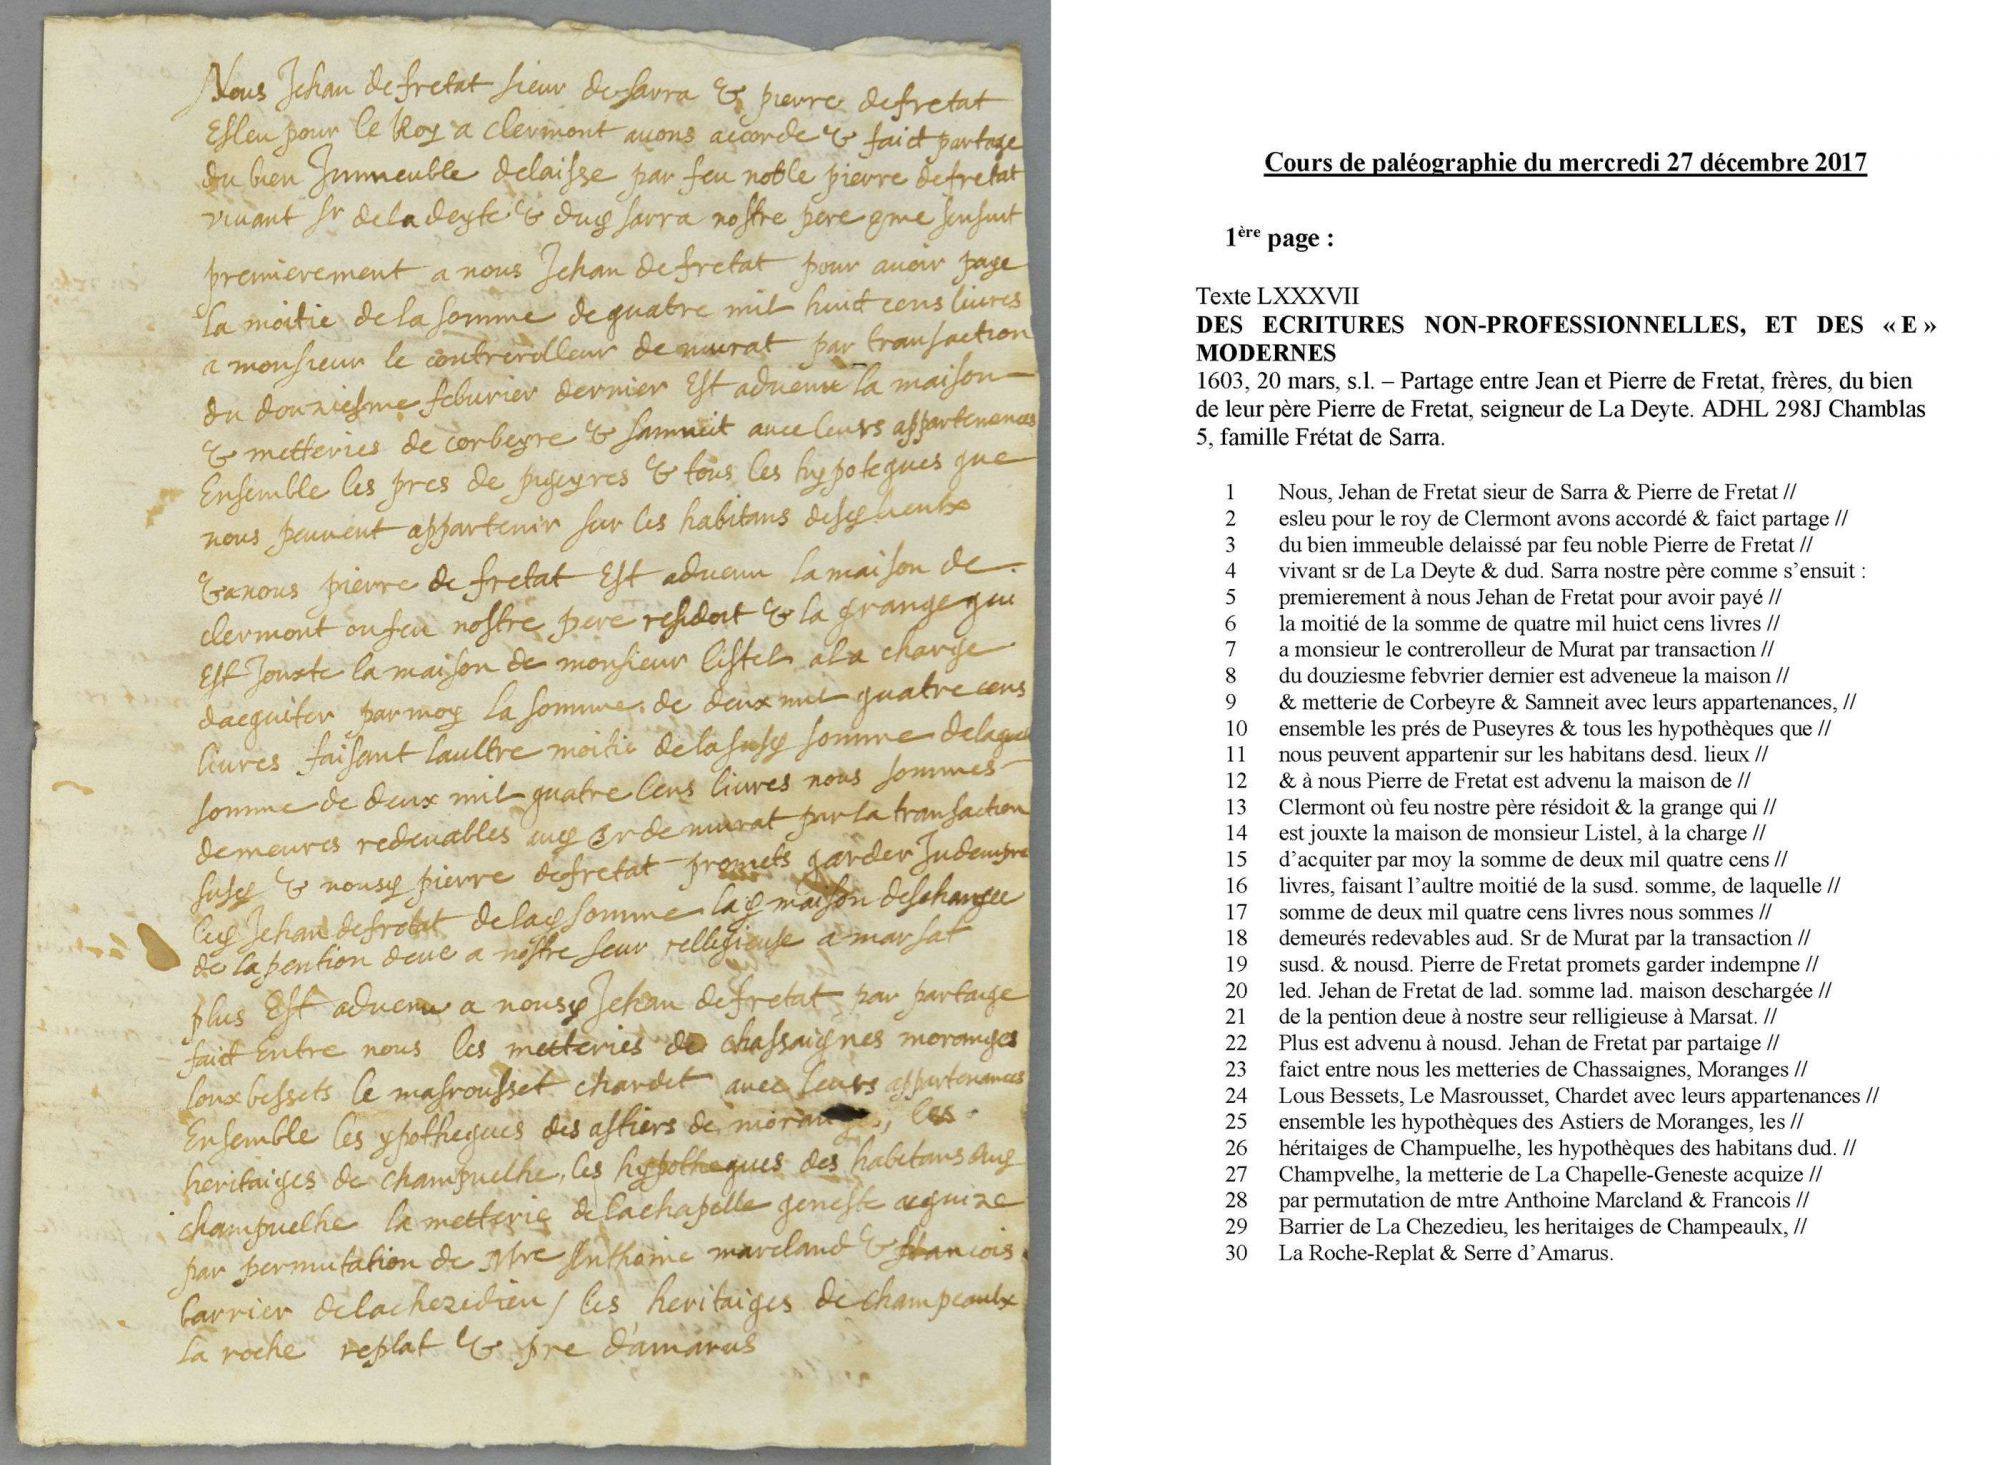 Nous Jehan de fretat sieur de sarra & pierre de fretat
Esleu pour le Roy a clermont avons accorde & faict partage
du bien Immeuble delaisse par feu noble pierre de fretat
vivant sr de la deyte & dud sarra nostre pere cme sensuit
premierement a nous Jehan de fretat pour avoir paye
la moitie de la somme de quatre mil huict cens livres
a monsieur le contrerolleur de murat par transaction
du douziesme feburier dernier Est advenu la maison
& metteries de corbeyre & samneit avec leurs appartenences
Ensemble les pres de puseyres & tous les hypoteques que
nous peuvent appartenir sur les habitans desd lieulx
& a nous pierre de fretat Est advenu la maison de
clermont ou feu nostre pere residoit & la grange qui
Est Jouxte la maison de monsieur listel a la charge
dacquiter par moy la somme de deux mil quatre cens
livres faisant laultre moitie de la susd somme de laquel
somme de deux mil quatre cens livres nous sommes
demeures redevables aud Sr de murat par la transaction
susd & nousd pierre de fretat promets garder Indempne
led Jehan de fretat de lad somme lad maison deschargee
de la pention deue a nostre seur relligieuse a marsat
plus Est advenu a nousd Jehan de fretat par partaige
faict Entre nous les metteries de chassaignes moranges
loux bessets le masrousset chardet avec leurs appartenances
Ensemble les ypotheques des astiers de moran , les
heritaiges de champuelhe, les hypotheques des habitans dud
champuelhe la metterie de la chapelle geneste acquize
par permutation de Mtre Anthoine marcland & francois
barrier de la chezedieu / les heritaiges de champeaulx
la roche replat & pre d'amarus
Cours de paléographie du mercredi 27 décembre 2017
1ère page :
Texte LXXXVII
DES ECRITURES NON-PROFESSIONNELLES, ET DES « E »
MODERNES
1603, 20 mars, s.l. – Partage entre Jean et Pierre de Fretat, frères, du bien
de leur père Pierre de Fretat, seigneur de La Deyte. ADHL 298J Chamblas
5, famille Frétat de Sarra.
1 Nous, Jehan de Fretat sieur de Sarra & Pierre de Fretat //
2 esleu pour le roy de Clermont avons accordé & faict partage //
3 du bien immeuble delaissé par feu noble Pierre de Fretat //
4 vivant sr de La Deyte & dud. Sarra nostre père comme s'ensuit :
5 premierement à nous Jehan de Fretat pour avoir payé //
6 la moitié de la somme de quatre mil huict cens livres //
7 a monsieur le contrerolleur de Murat par transaction //
8 du douziesme febvrier dernier est adveneue la maison //
9 & metterie de Corbeyre & Samneit avec leurs appartenances, //
10 ensemble les prés de Puseyres & tous les hypothèques que //
11 nous peuvent appartenir sur les habitans desd. lieux //
12 & à nous Pierre de Fretat est advenu la maison de //
13 Clermont où feu nostre père résidoit & la grange qui //
14 est jouxte la maison de monsieur Listel, à la charge //
15 d'acquiter par moy la somme de deux mil quatre cens //
16 livres, faisant l'aultre moitié de la susd. somme, de laquelle //
17 somme de deux mil quatre cens livres nous sommes //
18 demeurés redevables aud. Sr de Murat par la transaction //
19 susd. & nousd. Pierre de Fretat promets garder indempne //
20 led. Jehan de Fretat de lad. somme lad. maison deschargée //
21 de la pention deue à nostre seur relligieuse à Marsat. //
22 Plus est advenu à nousd. Jehan de Fretat par partaige //
23 faict entre nous les metteries de Chassaignes, Moranges //
24 Lous Bessets, Le Masrousset, Chardet avec leurs appartenances //
25 ensemble les hypothèques des Astiers de Moranges, les //
26 héritaiges de Champuelhe, les hypothèques des habitans dud. //
27 Champvelhe, la metterie de La Chapelle-Geneste acquize //
28 par permutation de mtre Anthoine Marcland & Francois //
29 Barrier de La Chezedieu, les heritaiges de Champeaulx, //
30 La Roche-Replat & Serre d'Amarus.